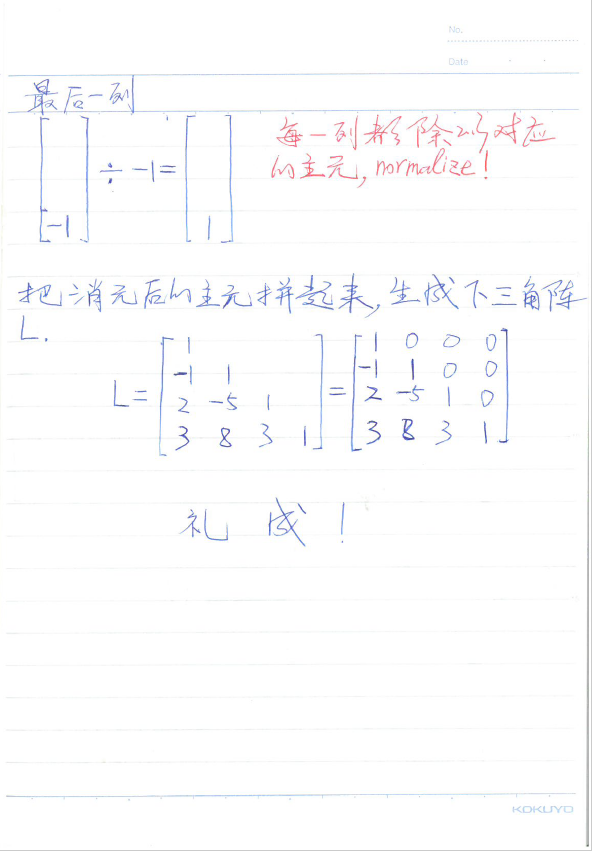 No.
Date
最后一列
[ -1] ÷ -1 = [ 1]
每一列都除以对应
的主元, normalize!
把消元后的主元拼起来, 生成下三角阵
L.
1 1 0 0 0
-1 1 -1 1 0 0
L = 2 -5 1 = 2 -5 1 0
3 8 3 1 3 8 3 1
礼 成 !
KOKUYO